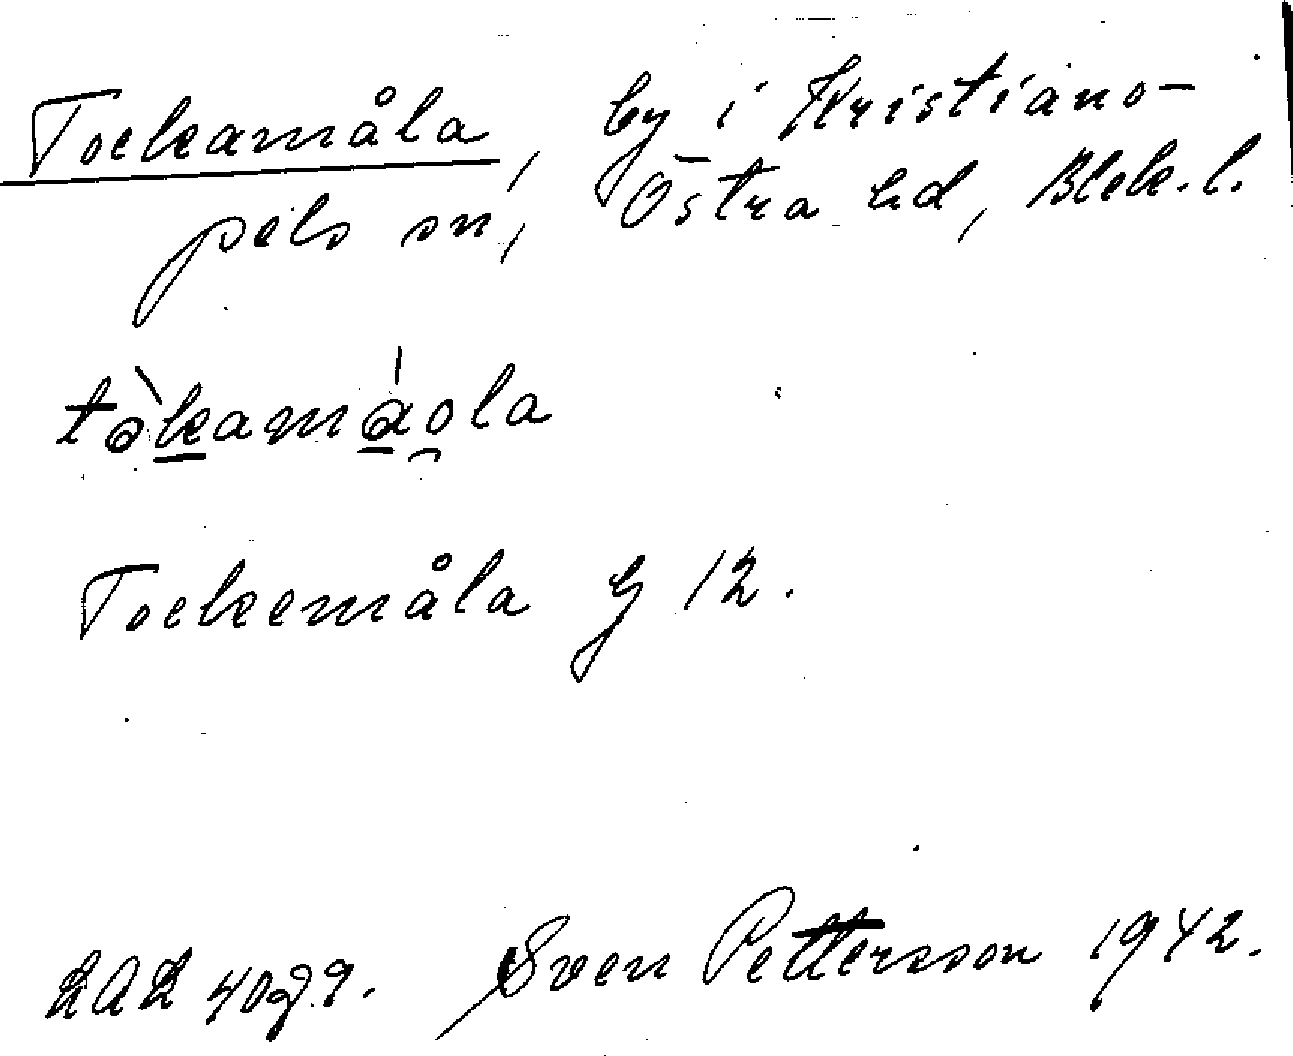 Tockamåla, by i Kristiano-
pels sn, Östra hd, Blek. l.
tòkamåola
Tockemåla G 12.
Sven Pettersson 1942.